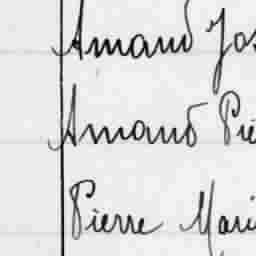 Amand Jos
Amand Pie
Pierre Mari